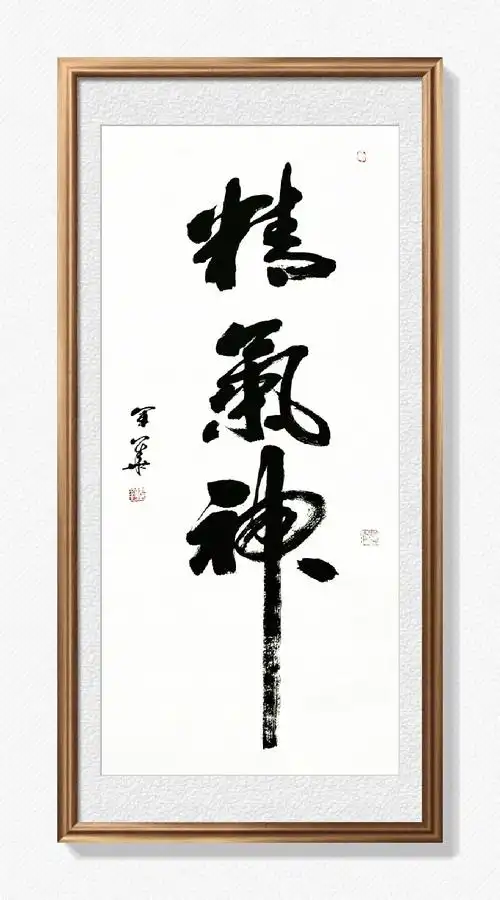 精氣神
軍華